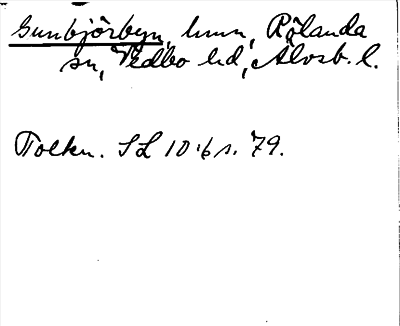 Gunbjörbyn, hmn, Rölanda
sn, Vedbo hd, Älvsb. l.
Tolkn. SL 10:6 s. 79.